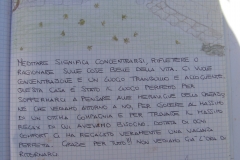 MEDITARE SIGNIFICA CONCENTRARSI, RIFLETTERE O
RAGIONARE SULLE COSE BELLE DELLA VITA. CI VUOLE
CONCENTRAZIONE E UN LUOGO TRANQUILLO E ACCOGLIENTE.
QUESTA CASA È STATO IL LUOGO PERFETTO PER
SOFFERMARCI A PENSARE ALLE MERAVIGLIE DELLA
CHE VERRANNO ATTORNO A NOI, PER GODERE AL MASSIMO
DI UN OTTIMA COMPAGNIA E PER TROVARE IL MASSIMO
RELAX DI CUI AVEVAMO BISOGNO. DOTATA DI OGNI
COMFORT, HA REGALATO VERAMENTE UNA VACANZA
PERFETTA. GRAZIE PER TUTTO!! NON VEDIAMO L'ORA DI
RITORNARCI